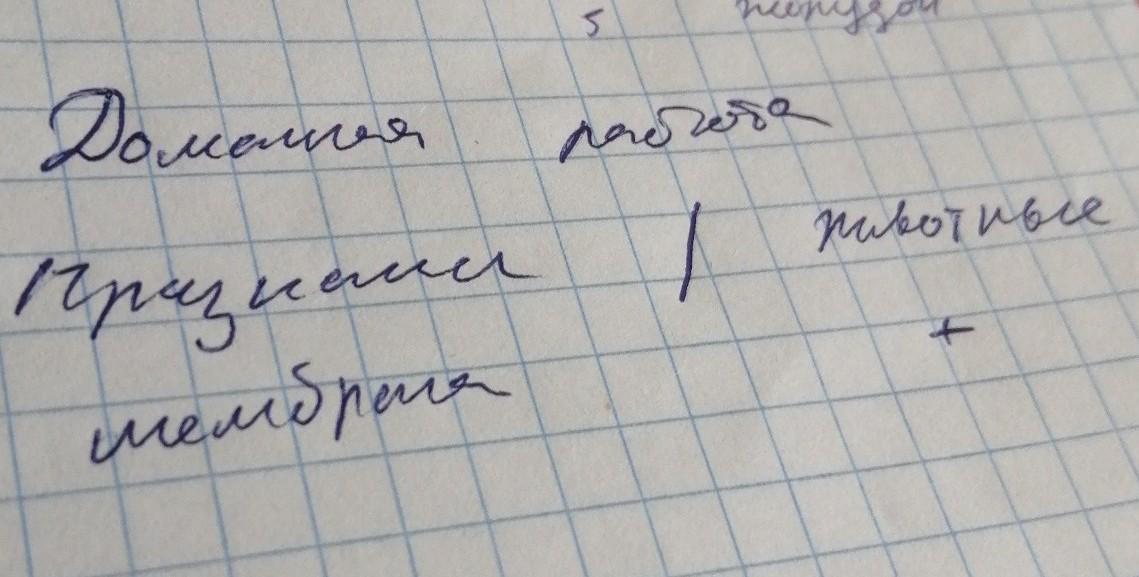 5
Домашняя работа
Признаки | животные
+
мембрана